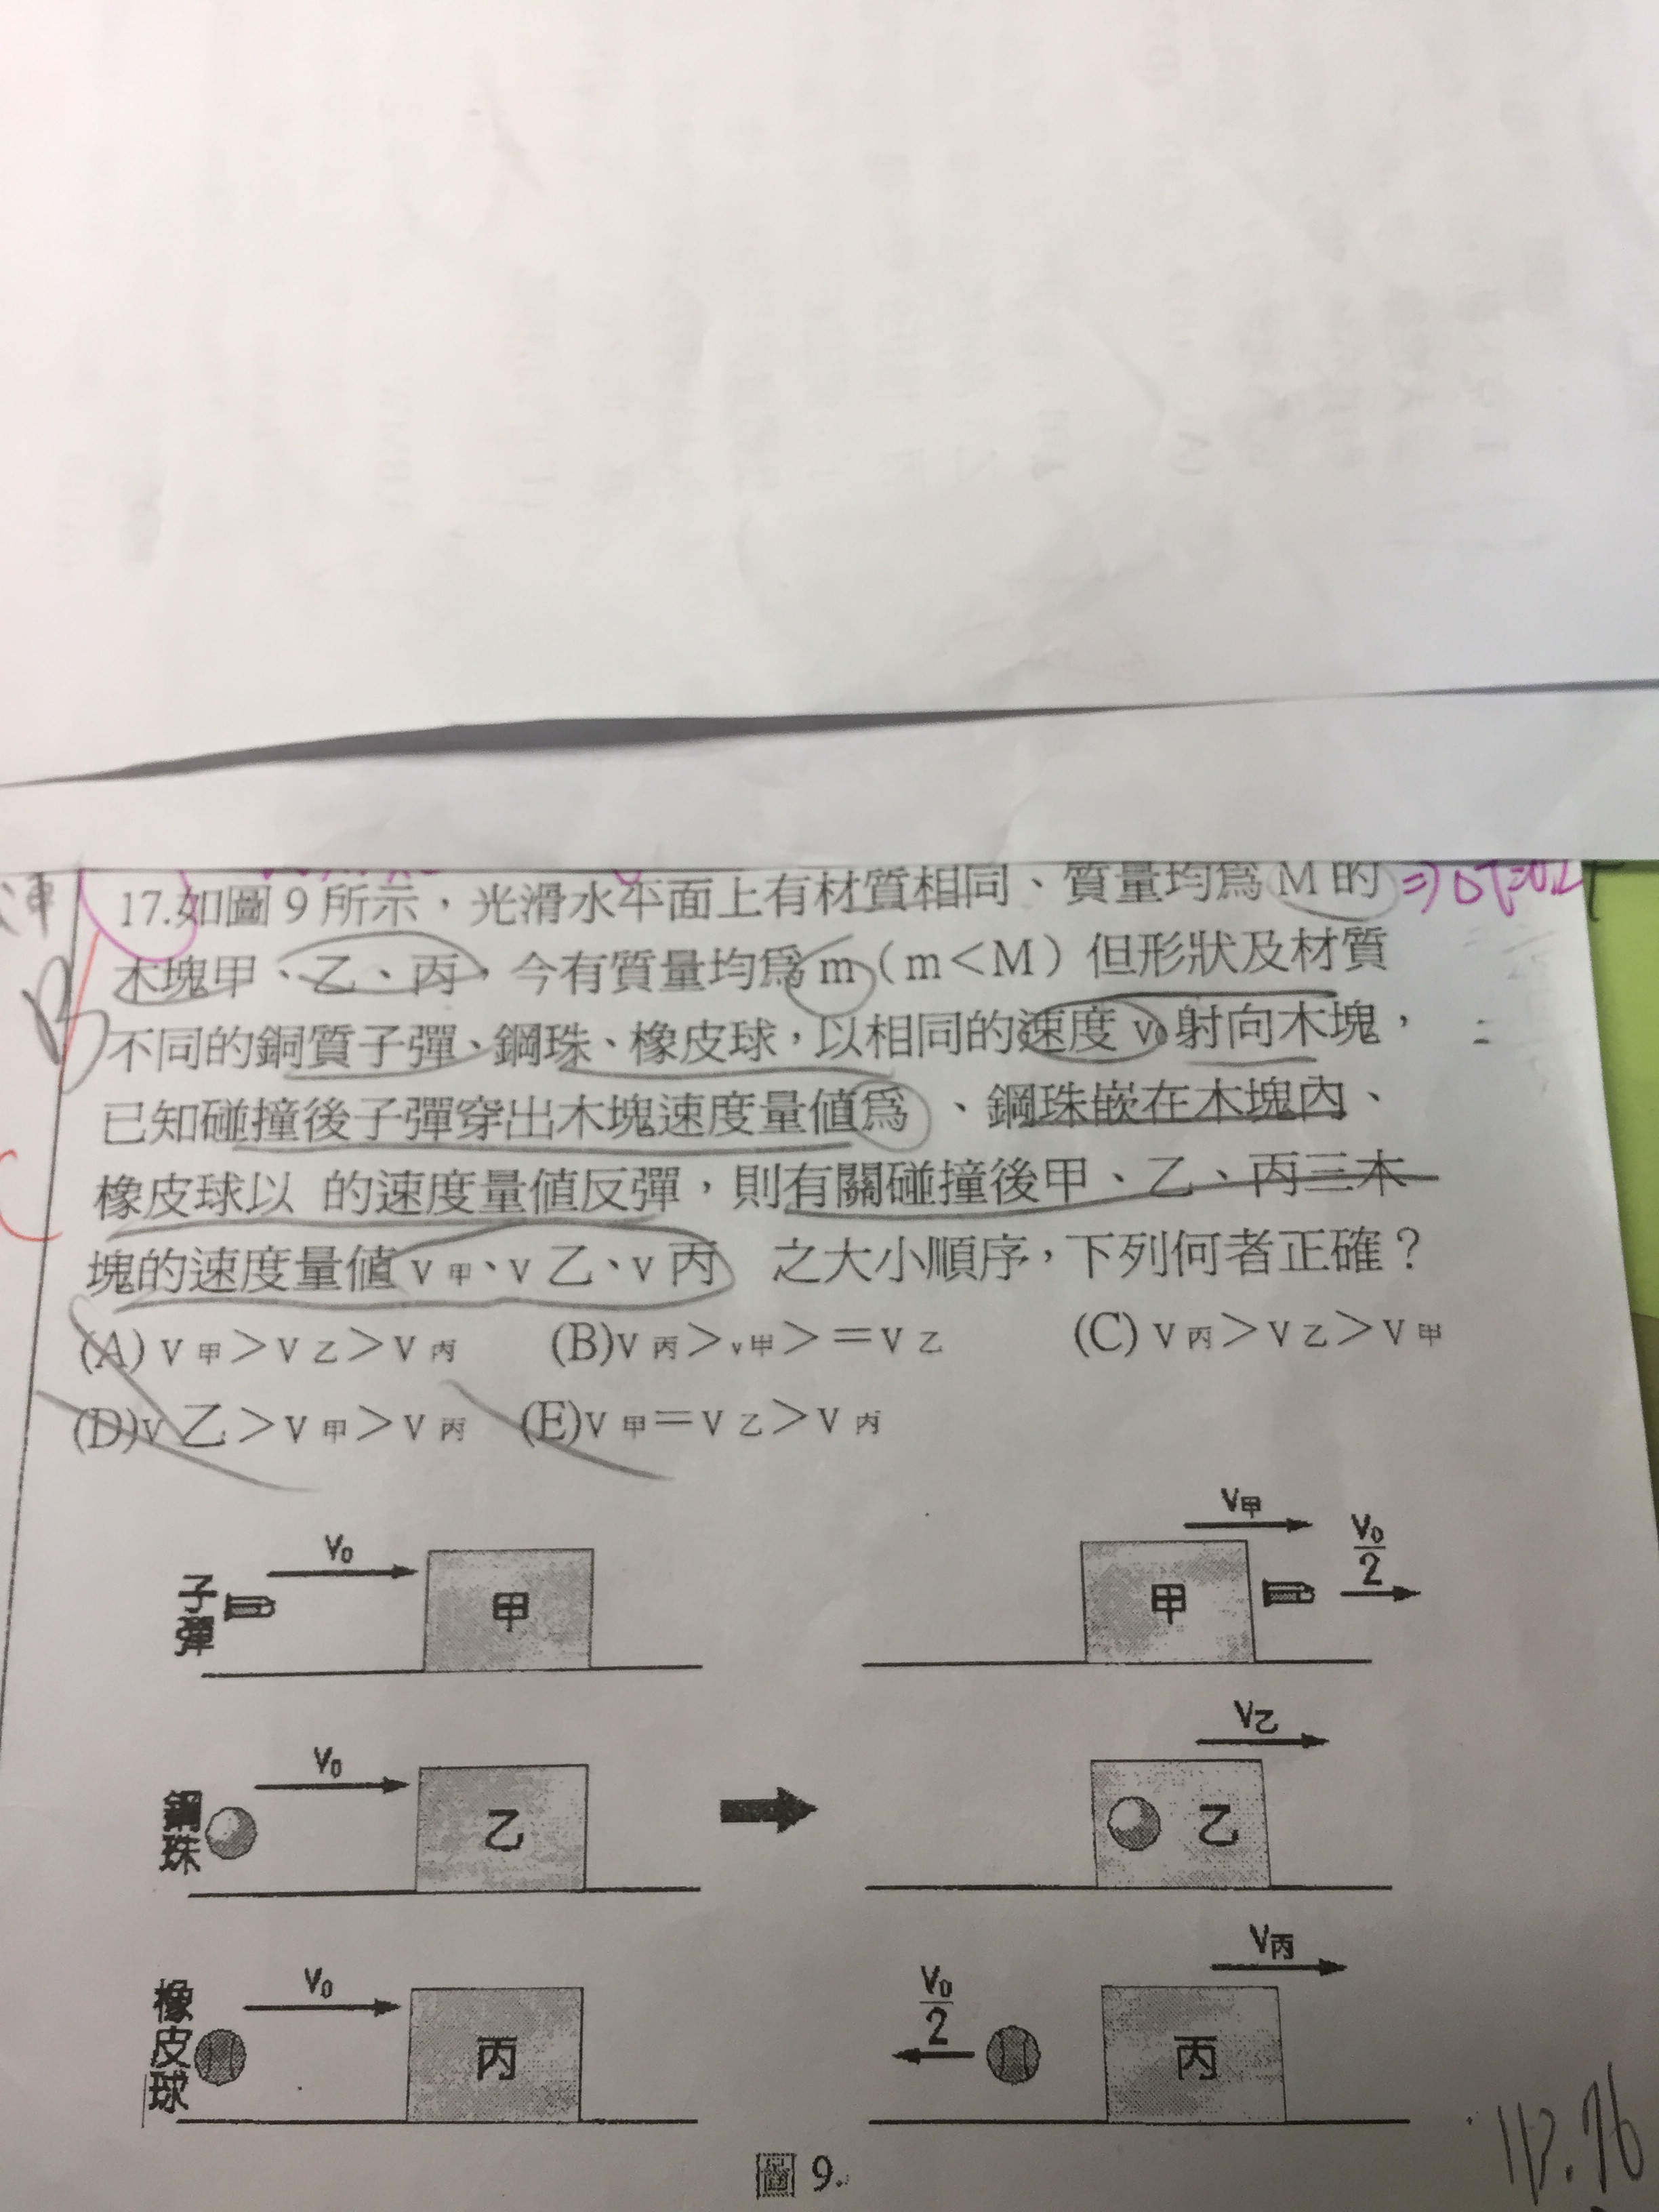 17.如圖 9 所示，光滑水平面上有材質相同、質量均為 M 的
木塊甲、乙、丙，今有質量均為 m（m＜M）但形狀及材質
B
不同的銅質子彈、鋼珠、橡皮球，以相同的速度 v₀ 射向木塊，
已知碰撞後子彈穿出木塊速度量值為 、鋼珠嵌在木塊內、
橡皮球以 的速度量值反彈，則有關碰撞後甲、乙、丙三木
塊的速度量值 v 甲、v 乙、v 丙 之大小順序，下列何者正確？
(A) v 甲＞v 乙＞v 丙 (B)v 丙＞v 甲＞＝v 乙 (C) v 丙＞v 乙＞v 甲
(D)v 乙＞v 甲＞v 丙 (E)v 甲＝v 乙＞v 丙
子彈 V₀ 甲 V甲 甲 V₀/2
鋼珠 V₀ 乙 V乙 乙
橡皮球 V₀ 丙 V₀/2 V丙 丙
圖 9.